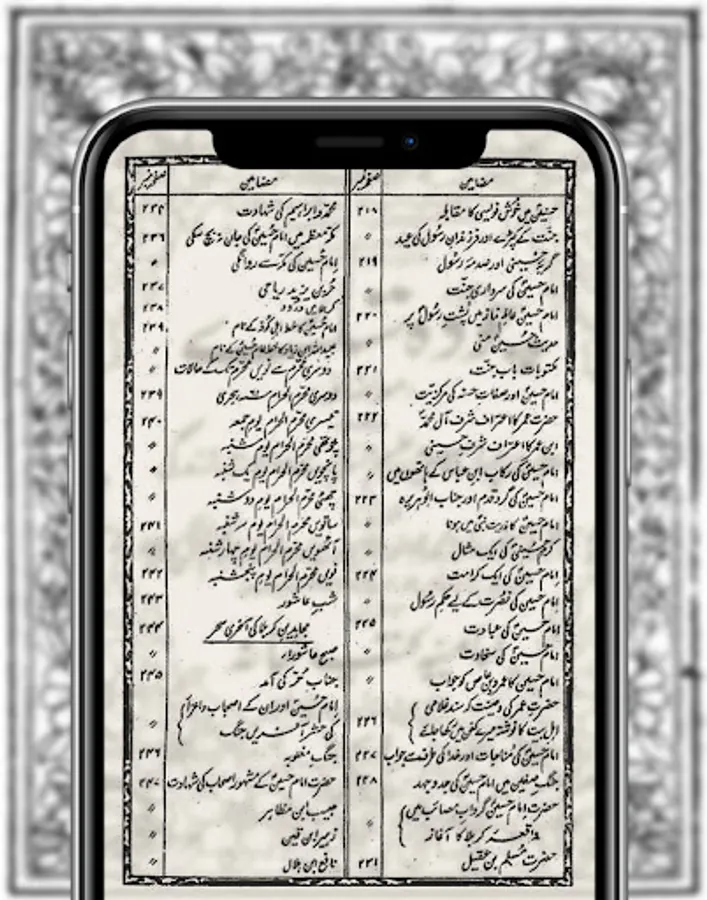 مضامین
صفحہ نمبر
حسنین میں خوش نویسی کا مقابلہ ۲۱۸
جنت کے کپڑے اور فرزندان رسول کی عید 〃
گریۂ حسینی اور صدمۂ رسول ۲۱۹
امام حسین کی سرداری جنت 〃
امام حسین عالم نماز میں پشت رسول پر ۲۲۰
حدیث حسین منی 〃
مکتوبات باب جنت ۲۲۱
امام حسین اور صفات حسنہ کی مرکزیت 〃
حضرت عمر کا اعتراف شرف آل محمد ۲۲۲
ابن عمر کا اعتراف شرف حسینی 〃
امام حسین کی رکاب ابن عباس کے ہاتھوں میں 〃
امام حسین کی گرد قدم اور جناب ابوہریرہ ۲۲۳
امام حسین کا ذریت نبی میں ہونا 〃
کرم حسینی کی ایک مثال 〃
امام حسین کی ایک کرامت ۲۲۴
امام حسین کی نصرت کے لیے حکم رسول 〃
امام حسین کی عبادت ۲۲۵
امام حسین کی سخاوت 〃
امام حسین کا عمرو بن عاص کو جواب 〃
حضرت عمر کی وصیت کہ سند غلامی
اہل بیت کا نوشتہ میرے کفن میں رکھا جائے ۲۲۶
امام حسین کی مناجات اور خدا کی طرف سے جواب ۲۲۷
جنگ صفین میں امام حسین کی جدوجہد ۲۲۸
حضرت امام حسین گرداب مصائب میں
واقعہ کربلا کا آغاز 〃
حضرت مسلم بن عقیل ۲۳۱
مضامین
صفحہ نمبر
محمد و ابراہیم کی شہادت ۲۳۴
مکہ معظمہ میں امام حسین کی جان نہ بچ سکی ۲۳۶
امام حسین کی مکہ سے روانگی 〃
حر بن یزید ریاحی ۲۳۷
کربلا میں ورود ۲۳۸
امام حسین کا خط اہل کوفہ کے نام ۲۳۹
عبیداللہ ابن زیاد کا خط امام حسین کے نام 〃
دوسری محرم سے نویں محرم تک کے حالات 〃
دوسری محرم الحرام ہجری ۲۳۹
تیسری محرم الحرام یوم جمعہ ۲۴۰
چوتھی محرم الحرام یوم شنبہ 〃
پانچویں محرم الحرام یوم یک شنبہ 〃
چھٹی محرم الحرام یوم دو شنبہ 〃
ساتویں محرم الحرام یوم سہ شنبہ ۲۴۱
آٹھویں محرم الحرام یوم چہار شنبہ 〃
نویں محرم الحرام یوم پنجشنبہ ۲۴۲
شب عاشور ۲۴۳
مجاہدین کربلا کی آخری سحر ۲۴۴
صبح عاشورا 〃
جناب حر کی آمد ۲۴۵
امام حسین اور ان کے اصحاب و اعزا
کی حشر آفریں جنگ 〃
جنگ مغلوبہ ۲۴۶
حضرت امام حسین کے مشہور اصحاب کی شہادت ۲۴۷
حبیب ابن مظاہر 〃
زہیر ابن قین 〃
نافع ابن ہلال 〃